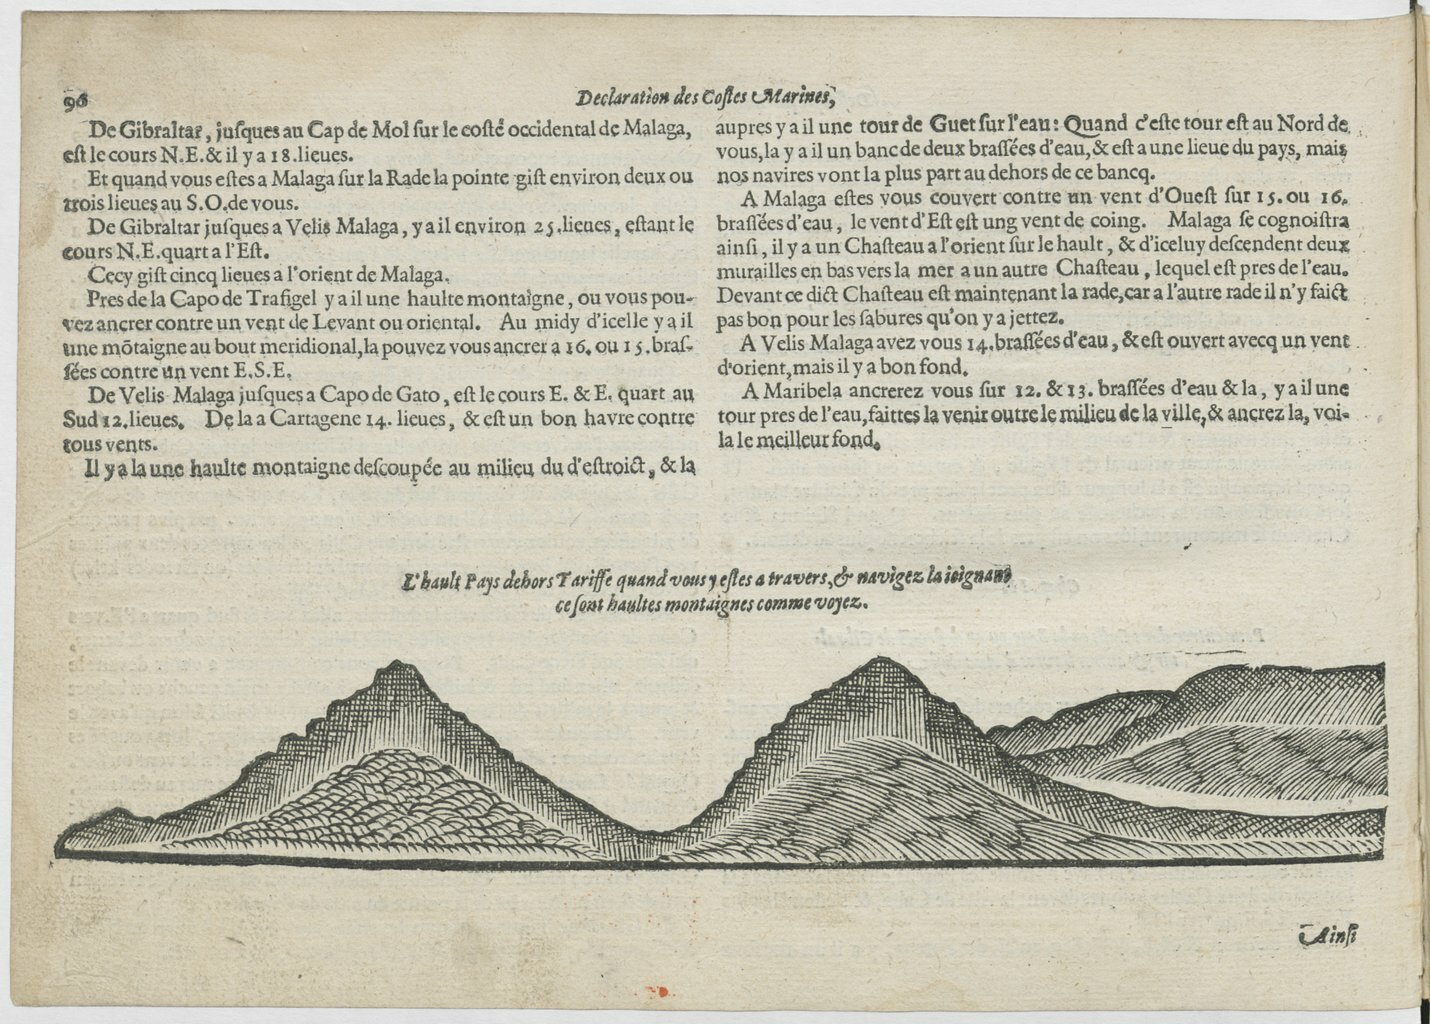 96
Declaration des Costes Marines,
De Gibraltar, jusques au Cap de Mol sur le costé occidental de Malaga,
est le cours N.E. & il y a 18. lieues.
Et quand vous estes a Malaga sur la Rade la pointe gist environ deux ou
trois lieues au S.O. de vous.
De Gibraltar jusques a Velis Malaga, y a il environ 25. lieues, estant le
cours N.E. quart a l'Est.
Cecy gist cincq lieues a l'orient de Malaga.
Pres de la Capo de Trafigel y a il une haulte montaigne, ou vous pou-
vez ancrer contre un vent de Levant ou oriental. Au midy d'icelle y a il
une mõtaigne au bout meridional, la pouvez vous ancrer a 16. ou 15. bras-
sées contre un vent E.S.E.
De Velis Malaga jusques a Capo de Gato, est le cours E. & E. quart au
Sud 12. lieues. De la a Cartagene 14. lieues, & est un bon havre contre
tous vents.
Il y a la une haulte montaigne descoupée au milieu du d'estroict, & la
aupres y a il une tour de Guet sur l'eau: Quand c'este tour est au Nord de
vous, la y a il un banc de deux brassées d'eau, & est a une lieue du pays, mais
nos navires vont la plus part au dehors de ce bancq.
A Malaga estes vous couvert contre un vent d'Ouest sur 15. ou 16.
brassées d'eau, le vent d'Est est ung vent de coing. Malaga se cognoistra
ainsi, il y a un Chasteau a l'orient sur le hault, & d'iceluy descendent deux
murailles en bas vers la mer a un autre Chasteau, lequel est pres de l'eau.
Devant ce dict Chasteau est maintenant la rade, car a l'autre rade il n'y faict
pas bon pour les sabures qu'on y a jettez.
A Velis Malaga avez vous 14. brassées d'eau, & est ouvert avecq un vent
d'orient, mais il y a bon fond.
A Maribela ancrerez vous sur 12. & 13. brassées d'eau & la, y a il une
tour pres de l'eau, faittes la venir outre le milieu de la ville, & ancrez la, voi-
la le meilleur fond.
L'hault Pays dehors Tariffe quand vous y estes a travers, & navigez la ioignant
ce sont haultes montaignes comme voyez.
Ainsi